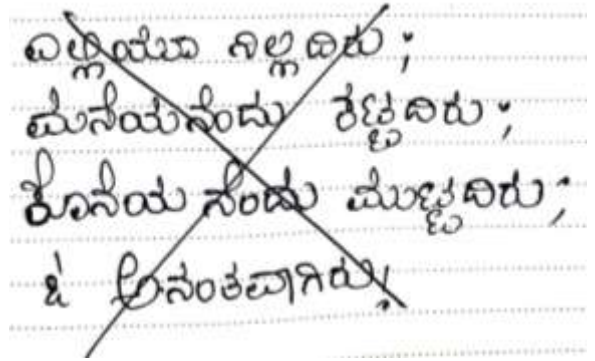 ಎಲ್ಲಿಯೂ ನಿಲ್ಲದಿರು;
ಮನೆಯನೆಂದು ಕಟ್ಟದಿರು;
ಕೊನೆಯ ನೆಂದು ಮುಟ್ಟದಿರು;
ಓ ಅನಂತವಾಗಿರು!